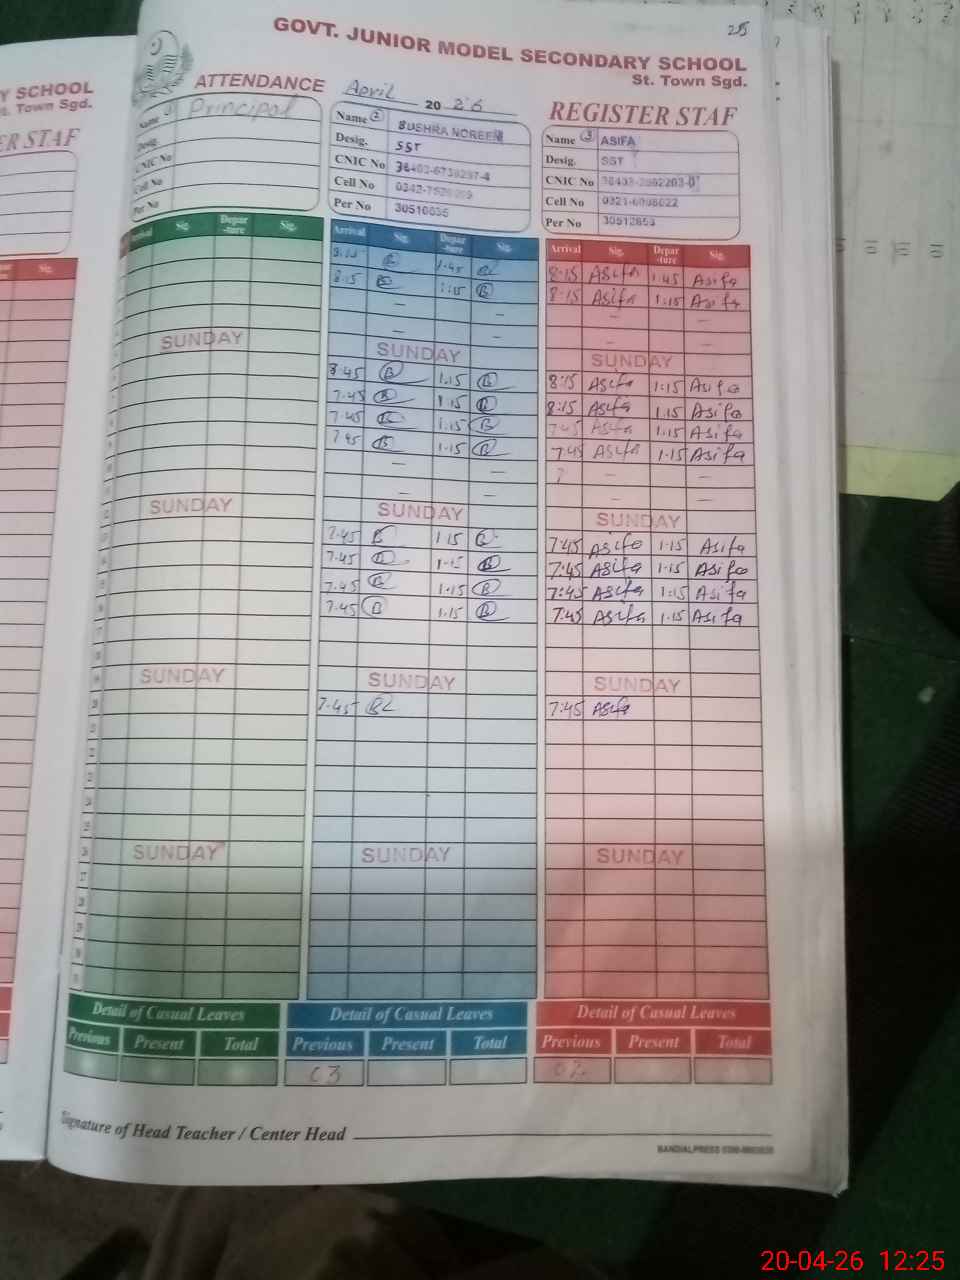 Y SCHOOL
St. Town Sgd.
ER STAF
Sig.
25
GOVT. JUNIOR MODEL SECONDARY SCHOOL
St. Town Sgd.
ATTENDANCE April 2026 REGISTER STAF
Name 1 Principal
Desig.
CNIC No
Cell No
Per No
Name 2 BUSHRA NOREEN
Desig. SST
CNIC No
Cell No
Per No
Name 3 ASIFA
Desig. SST
CNIC No
Cell No
Per No
Arrival Sig. Depar-ture Sig. Arrival Sig. Depar-ture Sig. Arrival Sig. Depar-ture Sig.
1.45 8:15 Asifa 1:45 Asifa
8.15 B 1:15 B 8:15 Asifa 1:15 Asifa
— — — —
— — — —
SUNDAY SUNDAY SUNDAY
8.45 B 1.15 B 8:15 Asifa 1:15 Asifa
7.45 B 1.15 B 8:15 Asifa 1.15 Asifa
7.45 B 1:15 B 7:45 Asifa 1:15 Asifa
7.45 B 1.15 B 7:45 Asifa 1.15 Asifa
— — — —
— — — —
SUNDAY SUNDAY SUNDAY
7.45 B 1.15 B 7:45 Asifa 1.15 Asifa
7.45 B 1.15 B 7:45 Asifa 1.15 Asifa
7.45 B 1.15 B 7:45 Asifa 1:15 Asifa
7.45 B 1.15 B 7:45 Asifa 1.15 Asifa
SUNDAY SUNDAY SUNDAY
7.45 B 7:45 Asifa
SUNDAY SUNDAY SUNDAY
Detail of Casual Leaves Detail of Casual Leaves Detail of Casual Leaves
Previous Present Total Previous Present Total Previous Present Total
03 02
Signature of Head Teacher / Center Head
20-04-26 12:25